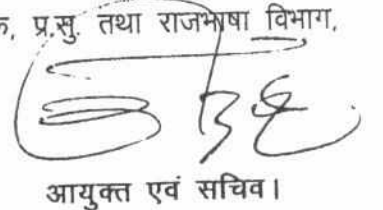 प्र.सु. तथा राजभाषा विभाग,
आयुक्त एवं सचिव।